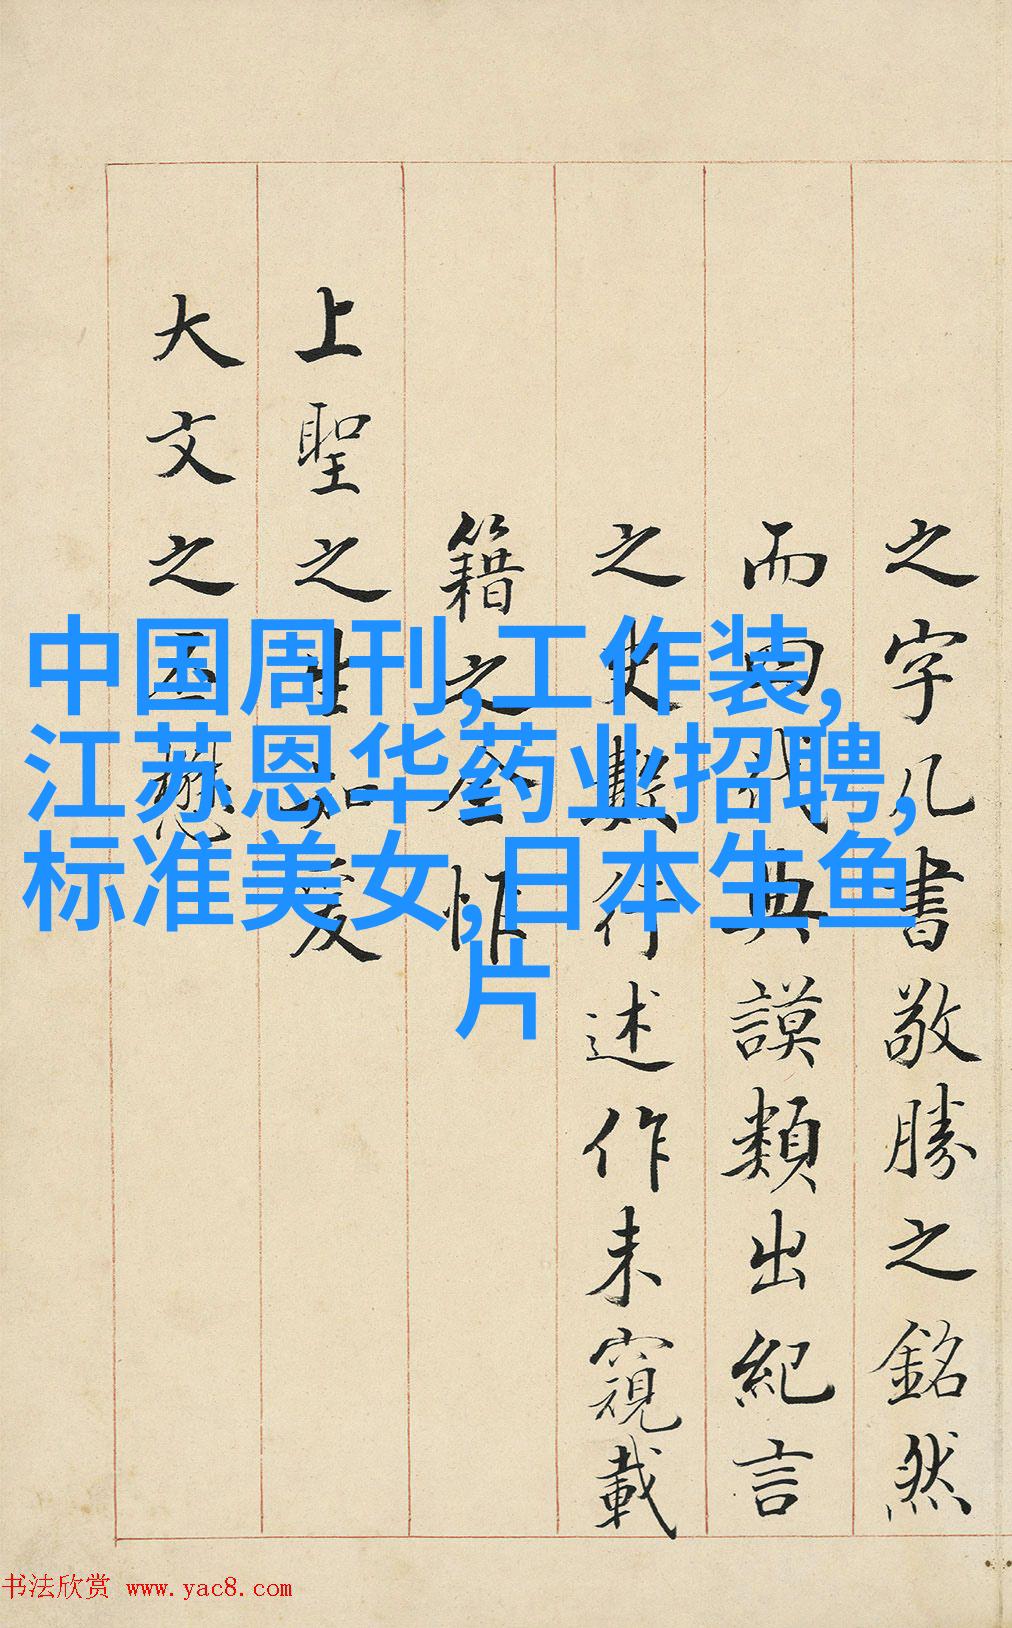 之字几書敬勝之銘然
而四代典謨類出紀言
之史數行述作未窺載
籍之全惟
上聖之生知爰
大文之丕懋
中国周刊,工作装,
江苏恩华药业招聘,
标准美女,日本生鱼
片
书法欣赏 www.yac8.com